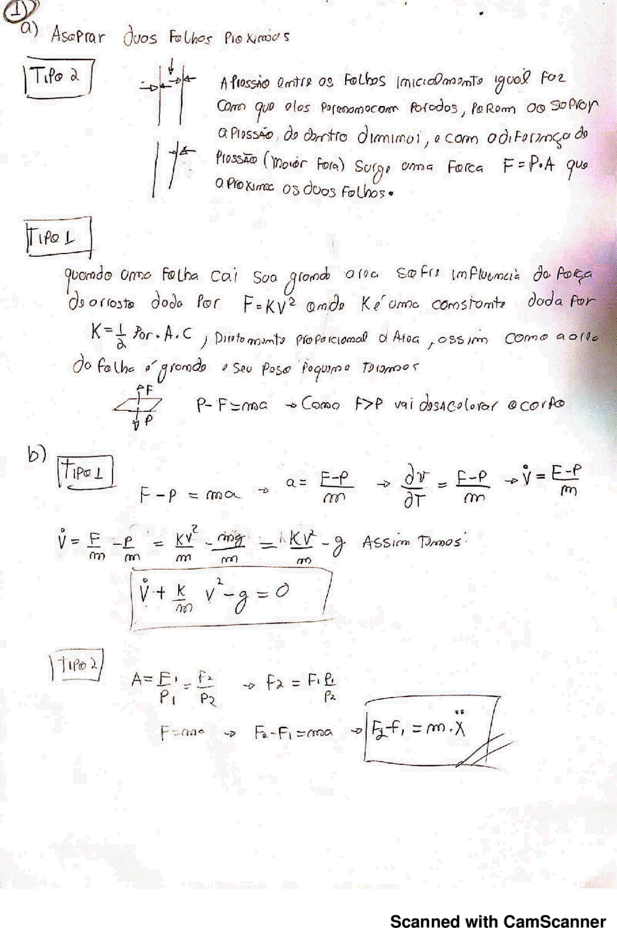 1
a) Asoprar duas Folhas Proximas
Tipo 2
A Pressão entre as Folhas inicialmente igual faz
com que elas Permanecam Paradas, Porem ao soprar
a Pressão, de dentro diminui, e com a diferença de
Pressão (maior fora) Surge uma Forca F=P.A que
aproxima as duas Folhas.
Tipo 1
quando uma Folha cai Sua grande area sofre influencia da força
de arrasto dada Por F=KV² onde K é uma constante dada Por
K=1/2 Por.A.C, Diretamente proporcional a Area, assim como a area
da folha é grande e seu Peso Pequeno Teremos
F
P
P-F=ma → Como F>P vai desacelerar o corpo
b)
Tipo 1
F-P=ma → a= F-P/m → ∂v/∂T = F-P/m → V̇= F-P/m
V̇= F/m - P/m = KV²/m - mg/m = KV²/m - g Assim Temos:
V̇ + K/m V² - g = 0
Tipo 2
A= F1/P1 = F2/P2 → F2 = F1 P1/P2
F=ma → F2-F1=ma → F2-F1 = m.Ẍ
Scanned with CamScanner